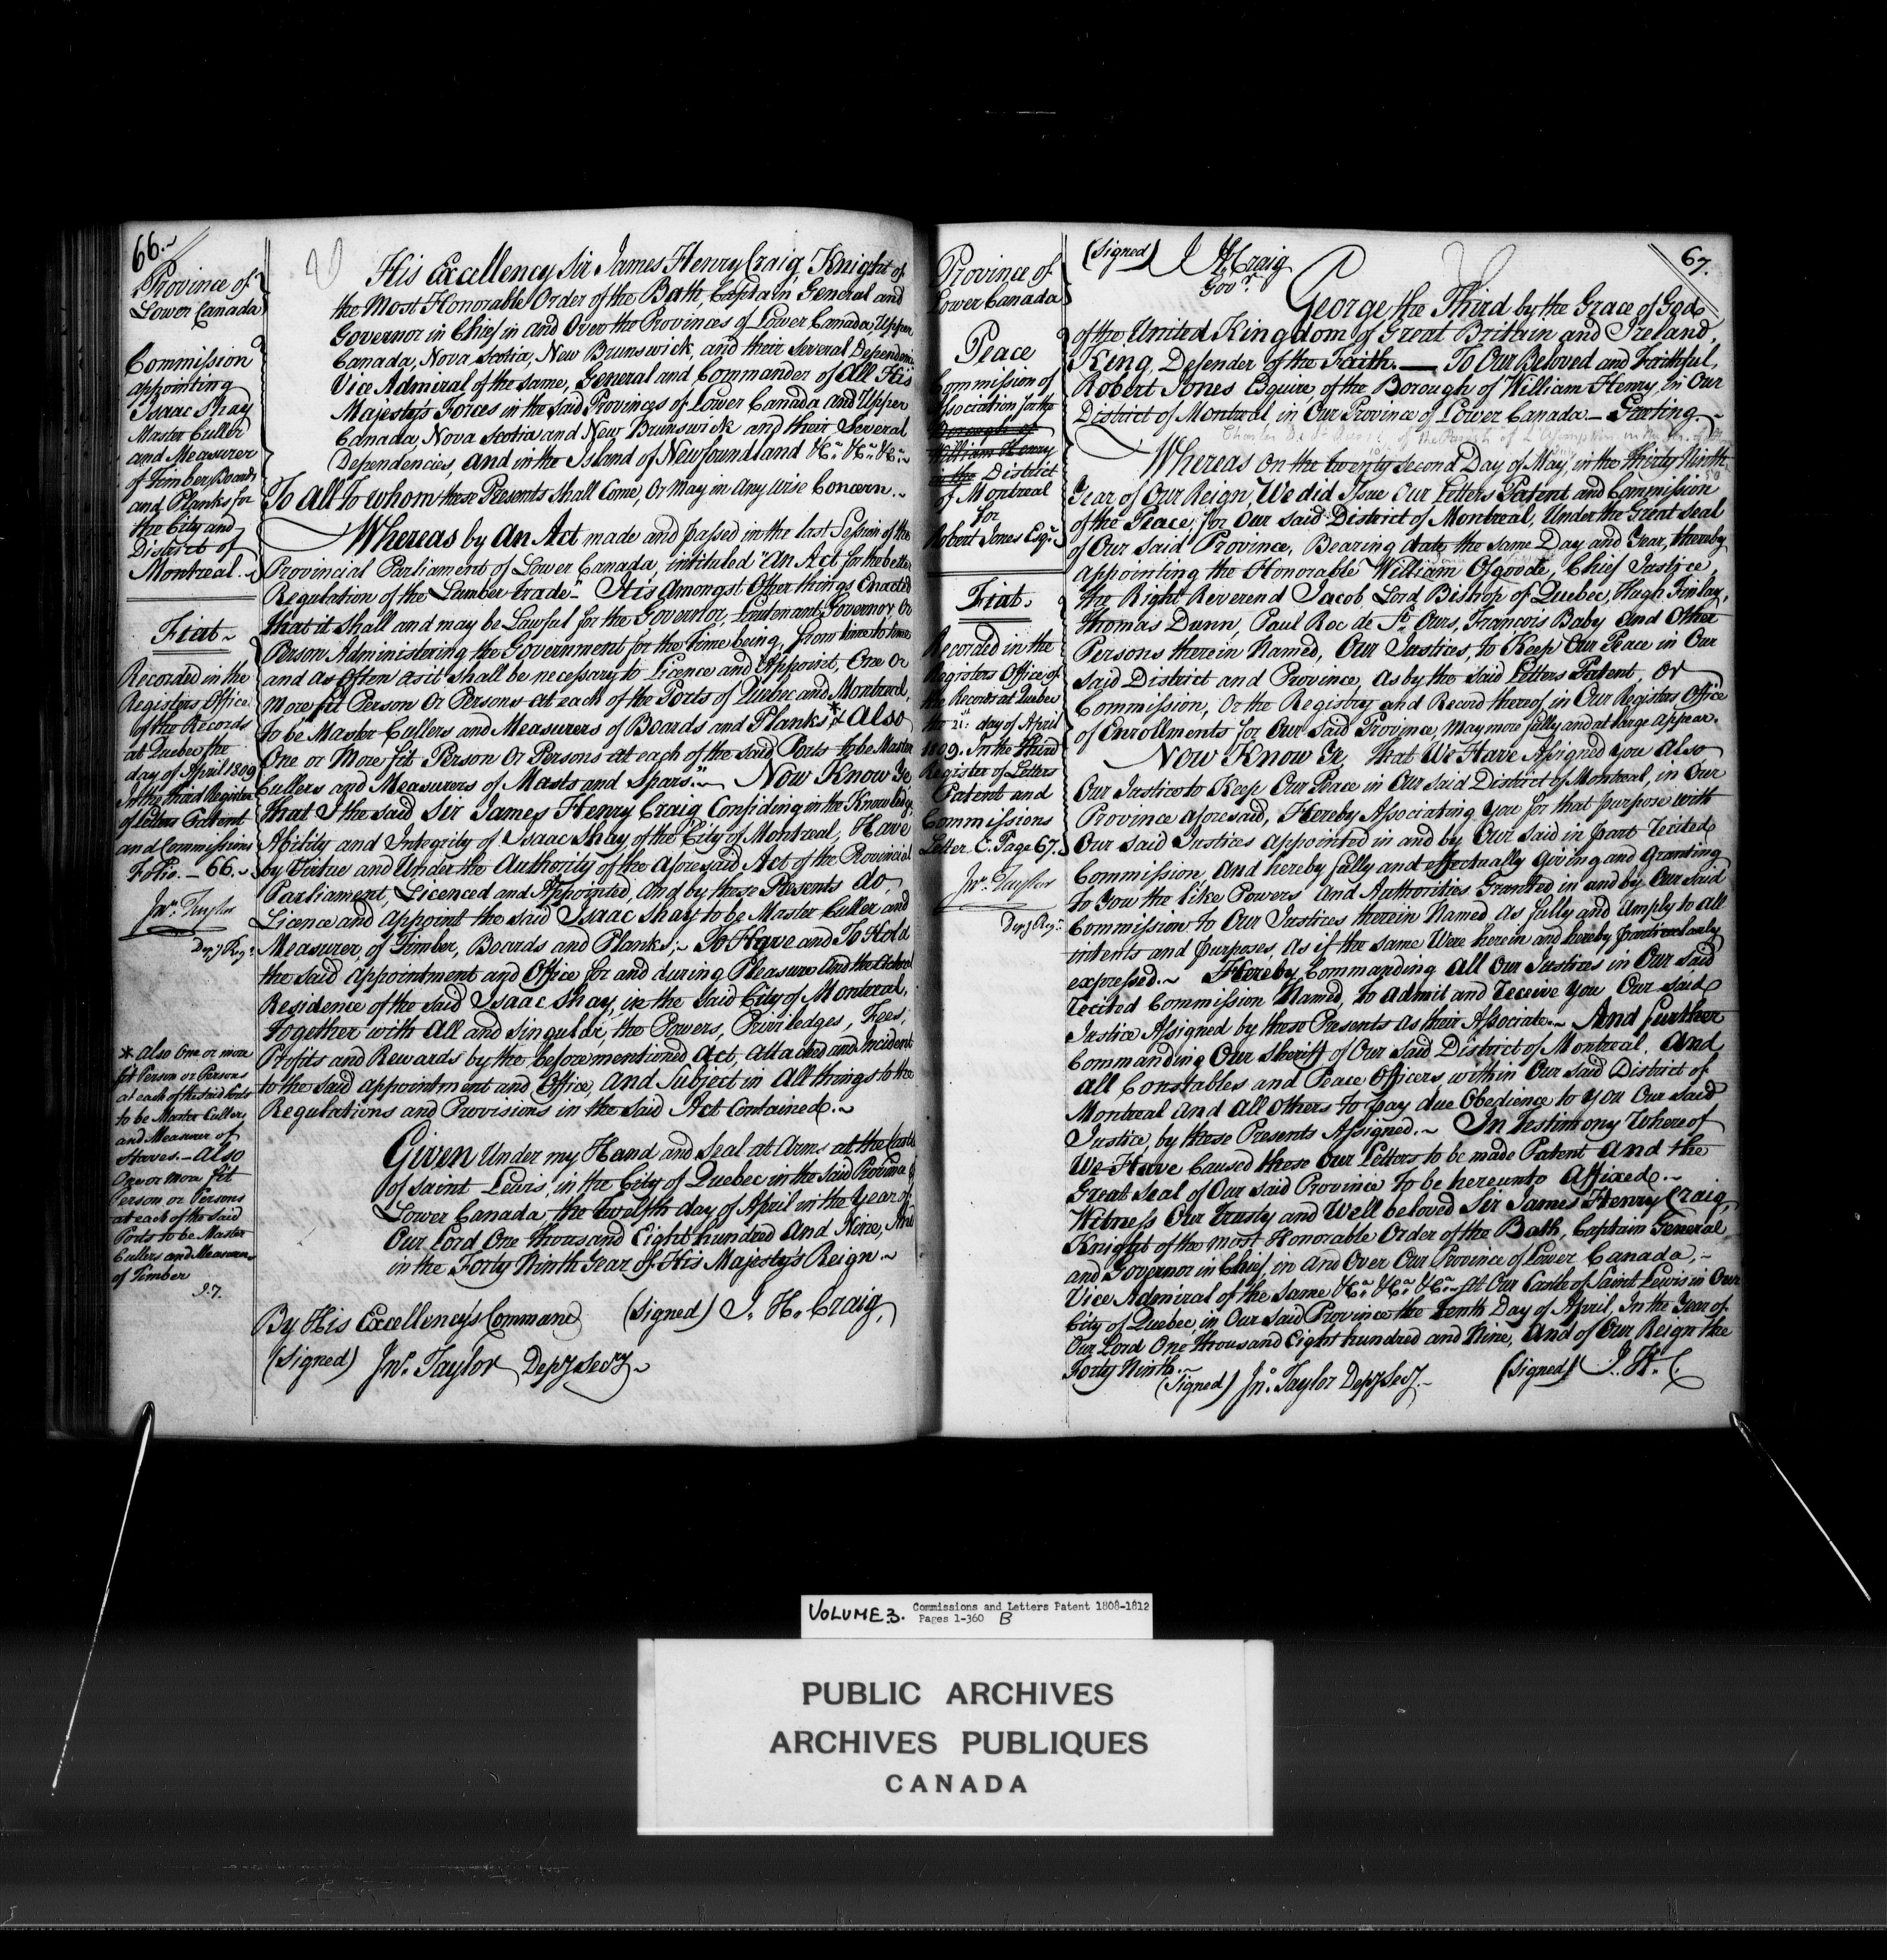 66.~
Province of
Lower Canada
Commission
appointing
Isaac Shay
Master Culler
and Measurer
of Timber, Boards
and Planks for
the City and
District of
Montreal.
Fiat~
Recorded in the
Registers Office
of the Records
at Quebec the
day of April 1809
In the third Register
of Letters Patent
and Commissions
Folio. - 66.~
Jnº. Taylor
Depy Regr.
* also One or more
fit Person or Persons
at each of the said Ports
to be Master Cullers
and Measurer of
Staves. - also
One or more fit
Person or Persons
at each of the said
Ports to be Master
Cullers and Measurers
of Timber
J.T.
His Excellency Sir James Henry Craig, Knight of
the Most Honorable Order of the Bath Captain General and
Governor in Chief in and Over the Provinces of Lower Canada, Upper
Canada, Nova Scotia, New Brunswick, and their Several Dependencies
Vice Admiral of the same, General and Commander of All His
Majesty's Forces in the said Provinces of Lower Canada and Upper
Canada, Nova Scotia and New Brunswick and their Several
Dependencies, and in the Island of Newfoundland &ca. &ca. &ca.~
To All To whom these Presents shall Come, Or may in any wise Concern.~
Whereas by An Act made and passed in the last Session of the
Provincial Parliament of Lower Canada, intituled "An Act for the better
Regulation of the Lumber trade" It is Amongst Other things Enacted
that it shall and may be Lawful for the Governor, Lieutenant Governor, Or
Person Administering the Government for the time being, from time to time
and as Often as it shall be necessary to Licence and Appoint, One Or
more fit Person Or Persons at each of the Ports of Quebec and Montreal,
to be Master Cullers and Measurers of Boards and Planks * Also
One or More fit Person Or Persons at each of the said Ports to be Master
Cullers and Measurers of Masts and Spars."~ Now Know Ye
that I the said Sir James Henry Craig Confiding in the Knowledge,
Ability and Integrity of Isaac Shay of the City of Montreal, Have
by Virtue and Under the Authority of the aforesaid Act of the Provincial
Parliament, Licenced and Appointed, and by these Presents do,
Licence and appoint the said Isaac Shay to be Master Culler and
Measurer, of Timber, Boards and Planks,~ To Have and To Hold
the said Appointment and Office for and during Pleasure and the actual
Residence of the said Isaac Shay, in the said City of Montreal,
Together with all and singular, the Powers, Priviledges, Fees,
Profits and Rewards by the before mentioned Act, attached and Incident
to the said appointment and Office, and Subject in All things to the
Regulations and Provisions in the said Act Contained.~
Given Under my Hand and Seal at Arms at the Castle
of Saint Lewis, in the City of Quebec in the said Province of
Lower Canada, the Twelfth day of April in the Year of
Our Lord One thousand Eight hundred And Nine, And
in the Forty Ninth Year of His Majesty's Reign.~
By His Excellency's Command (Signed) J. H. Craig,
(Signed) Jnº. Taylor Depy Secry~
67.
Province of
Lower Canada
Peace
Commission of
Association for the
Borough of
William Henry
in the District
of Montreal
for
Robert Jones Esqr.
Fiat.
Recorded in the
Registers Office of
the Records at Quebec
the 21st. day of April
1809. In the third
Register of Letters
Patent and
Commissions
Letter C. Page 67.
Jnº. Taylor
Depy Regr.
(Signed) J H. Craig
Govr.
George the Third by the Grace of God
of the United Kingdom of Great Britain and Ireland,
King, Defender of the Faith. — To Our Beloved and Faithful,
Robert Jones Esquire, of the Borough of William Henry, in Our
District of Montreal in Our Province of Lower Canada — Greeting~
Whereas on the twenty second Day of May, in the Thirty Ninth
Year of Our Reign, We did Issue Our Letters Patent and Commission
of the Peace, for Our said District of Montreal, Under the Great Seal
of Our said Province, Bearing date the same Day and Year, thereby
appointing the Honorable William Osgoode, Chief Justice,
the Right Reverend Jacob Lord Bishop of Quebec, Hugh Finlay,
Thomas Dunn, Paul Roc de St. Ours, Francois Baby and Other
Persons therein Named, Our Justices, to Keep Our Peace in Our
said District and Province, As by the said Letters Patent, Or
Commission, Or the Registry and Record thereof, in Our Registers Office
of Enrollments for Our said Province, May more fully and at large appear.
Now Know Ye, that We Have Assigned you Also
Our Justice to Keep Our Peace in Our said District of Montreal, in Our
Province aforesaid, Hereby Associating You for that purpose with
Our said Justices appointed in and by Our said in part recited
Commission, And hereby fully and effectually giving and granting
to You the like Powers and Authorities Granted in and by Our said
Commission to Our Justices therein Named As fully and Amply to all
intents and purposes, As if the same Were herein and hereby particularly
expressed.~ Hereby Commanding All Our Justices in Our said
recited Commission Named, to Admit and receive You Our said
Justice Assigned by these Presents as their Associate.~ And further
Commanding Our Sheriff of Our said District of Montreal, and
All Constables and Peace Officers within Our said District of
Montreal and All Others to pay due Obedience to you Our said
Justice, by these Presents Assigned.~ In Testimony Whereof
We Have Caused these Our Letters to be made Patent and the
Great Seal of Our said Province to be hereunto Affixed.~
Witness Our Trusty and Well beloved Sir James Henry Craig,
Knight of the most Honorable Order of the Bath, Captain General
and Governor in Chief, in and Over Our Province of Lower Canada,~
Vice Admiral of the same &ca. &ca. &ca.~ At Our Castle of Saint Lewis in Our
City of Quebec in Our said Province the Tenth Day of April, In the Year of
Our Lord One thousand Eight hundred and Nine, And of Our Reign the
Forty Ninth.~
(Signed) Jnº. Taylor Depy Secy.~ (Signed) J. H. C.
VOLUME 3. Commissions and Letters Patent 1808-1812
Pages 1-360 B
PUBLIC ARCHIVES
ARCHIVES PUBLIQUES
CANADA